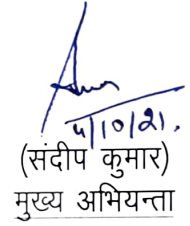 4/10/21.
(संदीप कुमार)
मुख्य अभियन्ता